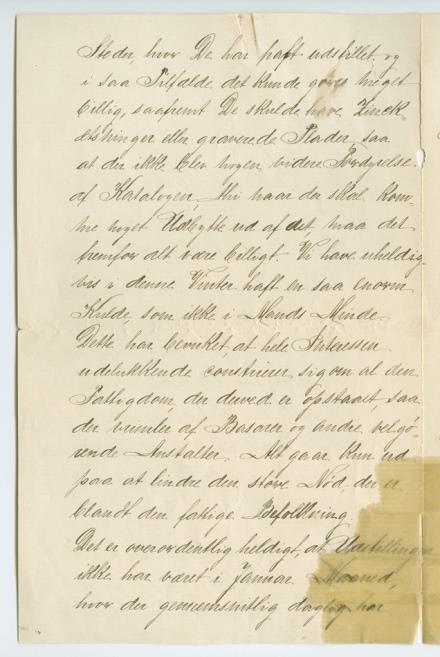 Steder, hvor De har haft udstillet, og
i saa Tilfælde det kunde gøres meget
billig, saafremt De skulde have Zinck-
ætsninger eller graverede Plader, saa
at der ikke blev nogen videre Fordyrelse
af Katalogen, thi naar der skal kom-
me noget Udbytte ud af det, maa det
fremfor alt være billigt. Vi have uheldig-
vis i denne Vinter haft en saa enorm
Kulde som ikke i Mands Minde.
Dette har bevirket, at hele Interessen
udelukkende sig om al den
Fattigdom, der derved er opstaaet, saa
der vrimler af Basarer og andre velgø-
rende Anstalter. Alt gaar kun ud
paa at lindre den store Nød, der er
blandt den fattige Befolkning.
Det er overordentlig heldigt, at Udstillingen
ikke har været i Januar Maaned,
hvor der gennemsnitlig daglig har